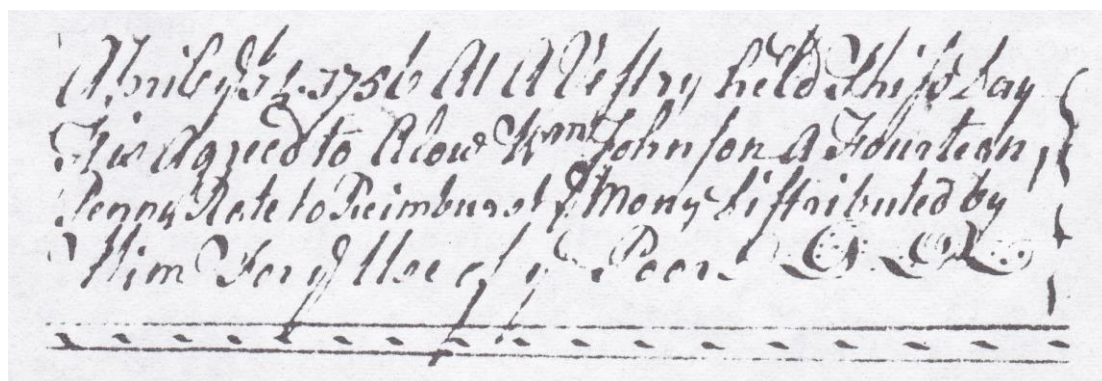 April ye 12. 1756 At A Vestry held This day
It is Agreed to Alow Wm Johnson A Fourteen
Penny Rate to Reimburst ye Mony Distributed by
Him For ye Use of ye Poor